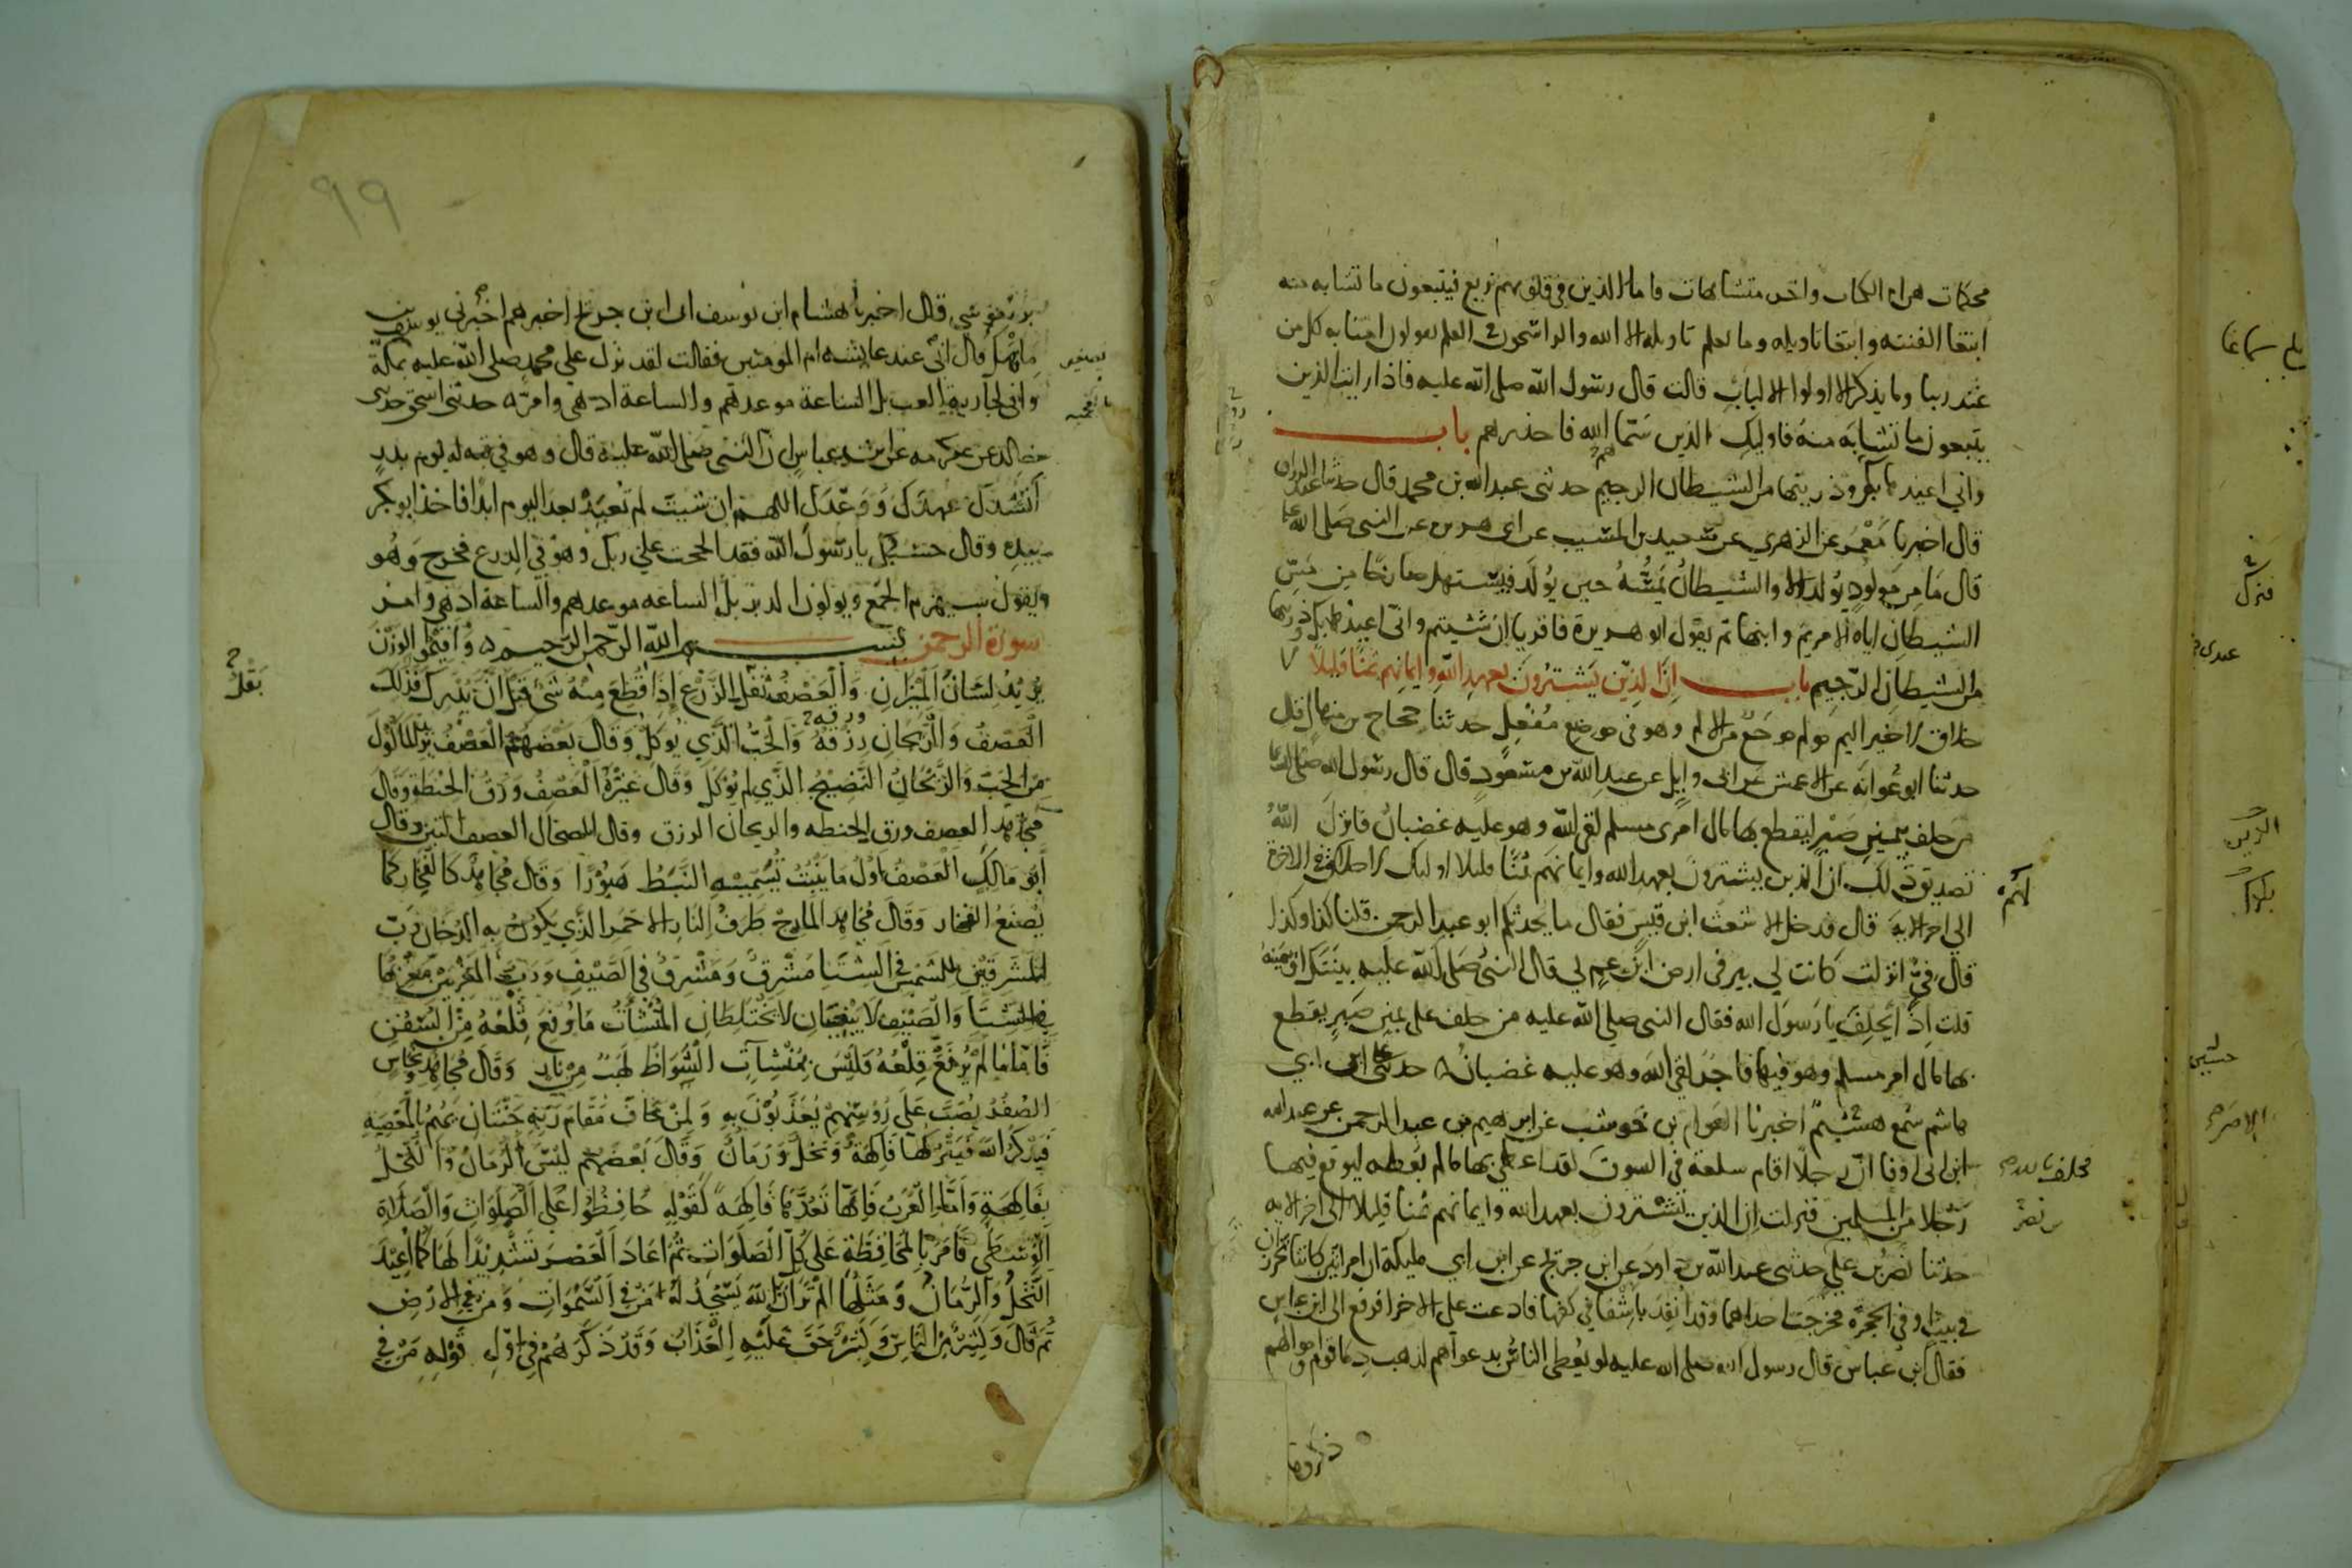 محكمات هن ام الكتاب واخر متشابهات فاما الذين في قلوبهم زيغ فيتبعون ما تشابه منه
ابتغا الفتنه وابتغا تاويله وما يعلم تاويله الا الله والراسخون في العلم يقولون امنا به كل من
عند ربنا وما يذكر الا اولوا الالباب قالت قال رسول الله صلى الله عليه فاذا رايت الذين
يتبعون ما تشابه منه فاوليك الذين سما الله فاحذرهم باب
واني اعيذها بك وذريتها من الشيطان الرجيم حدثني عبد الله بن محمد قال حدثنا عبد الرزاق
قال اخبرنا معمر عن الزهري عن سعيد بن المسيب عن ابي هريرة عن النبي صلى الله
قال ما من مولود يولد الا والشيطان يمسه حين يولد فيستهل صارخا من مس
الشيطان اياه الا مريم وابنها ثم يقول ابو هريرة فاقروا ان شيتم واني اعيذها بك وذريتها
من الشيطان الرجيم باب ان الذين يشترون بعهد الله وايمانهم ثمنا قليلا
خلاق لا خير اليم مولم موجع من الالم وهو في موضع مفعل حدثنا حجاج بن منهال قال
حدثنا ابو عوانه عن الاعمش عن ابي وايل عن عبد الله بن مسعود قال قال رسول الله صلى الله
من حلف يمين صبر ليقتطع بها مال امرى مسلم لقي الله وهو عليه غضبان فانزل الله
تصديق ذلك ان الذين يشترون بعهد الله وايمانهم ثمنا قليلا اوليك لا خلاق لهم في الاخرة
الى اخر الاية قال فدخل الاشعث ابن قيس فقال ما يحدثكم ابو عبد الرحمن قلنا كذا وكذا
قال في انزلت كانت لي بير في ارض ابن عم لي قال النبي صلى الله عليه بينتك او يمينه
قلت اذا يحلف يا رسول الله فقال النبي صلى الله عليه من حلف على يمين صبر يقتطع
بها مال امر مسلم وهو فيها فاجر لقي الله وهو عليه غضبان حدثني ابن ابي
هاشم سمع هشيم اخبرنا العوام بن حوشب عن ابرهيم بن عبد الرحمن عن عبد الله
ابن ابي اوفا ان رجلا اقام سلعة في السوق لقد اعطي بها ما لم يعطه ليوقع فيها
رجلا من المسلمين فنزلت ان الذين يشترون بعهد الله وايمانهم ثمنا قليلا الى اخر الايه
حدثنا نصر بن علي حدثني عبد الله بن داود عن ابن جريج عن ابن ابي مليكة ان امراتين كانتا تخرزان
في بيت او في الحجرة فخرجت احداهما وقد انفذ باشفا في كفها فادعت على الاخرا فرفع الى ابن عباس
فقال ابن عباس قال رسول الله صلى الله عليه لو يعطى الناس بدعواهم لذهب دما قوم واموالهم
ذكروها
٩٩
قال اخبرنا هشام ابن يوسف ان ابن جريج اخبرهم اخبرني يوسف بن
ماهك قال اني عند عايشه ام المومنين فقالت لقد نزل على محمد صلى الله عليه بمكة
واني لجارية العب بل الساعة موعدهم والساعة ادهى وامر حدثني اسحق حدثنا
خالد عن عكرمه عن ابن عباس ان النبي صلى الله عليه قال وهو في قبه له يوم بدر
انشدك عهدك ووعدك اللهم ان شيت لم تعبد بعد اليوم ابدا فاخذ ابو بكر
بيده وقال حسبك يا رسول الله فقد الححت على ربك وهو في الدرع فخرج وهو
ويقول سيهزم الجمع ويولون الدبر بل الساعه موعدهم والساعة ادهى وامر
سورة الرحمن بسم الله الرحمن الرحيم واقيموا الوزن
يريد لسان الميزان والعصف بقل الزرع اذا قطع منه شي قبل ان يدرك فذلك
العصف والريحان رزقه والحب الذي يوكل وقال بعضهم العصف يريد الماكول
من الحب والريحان النضيج الذي لم يوكل وقال غيره العصف ورق الحنطة وقال
مجاهد العصف ورق الحنطه والريحان الرزق وقال الضحاك العصف التبن وقال
ابو مالك العصف اول ما ينبت تسميه النبط هبورا وقال مجاهد كالفخار كما
يصنع الفخار وقال مجاهد المارج طرف النار الاحمر الذي يكون به الدخان رب
المشرقين للشمس في الشتا مشرق ومشرق في الصيف ورب المغربين مغربها
في الشتا والصيف لا يبغيان لا يختلطان المنشات ما رفع قلعه من السفن
فاما ما لم يرفع قلعه فليس بمنشات الشواظ لهب من نار وقال مجاهد ونحاس
الصفر يصب على روسهم يعذبون به ولمن خاف مقام ربه جنتان يهم بالمعصيه
فيذكر الله فيتركها فاكهة ونخل ورمان وقال بعضهم ليس الرمان والنخل
بفاكهة واما العرب فانها تعدها فاكهة لقوله حافظوا على الصلوات والصلاة
الوسطى فامر بالمحافظة على كل الصلوات ثم اعاد العصر تشديدا لها كما اعيد
النخل والرمان ومثلها الم تر ان الله يسجد له من في السموات ومن في الارض
ثم قال وكثير من الناس وكثير حق عليه العذاب وقد ذكرهم في اول قوله من في